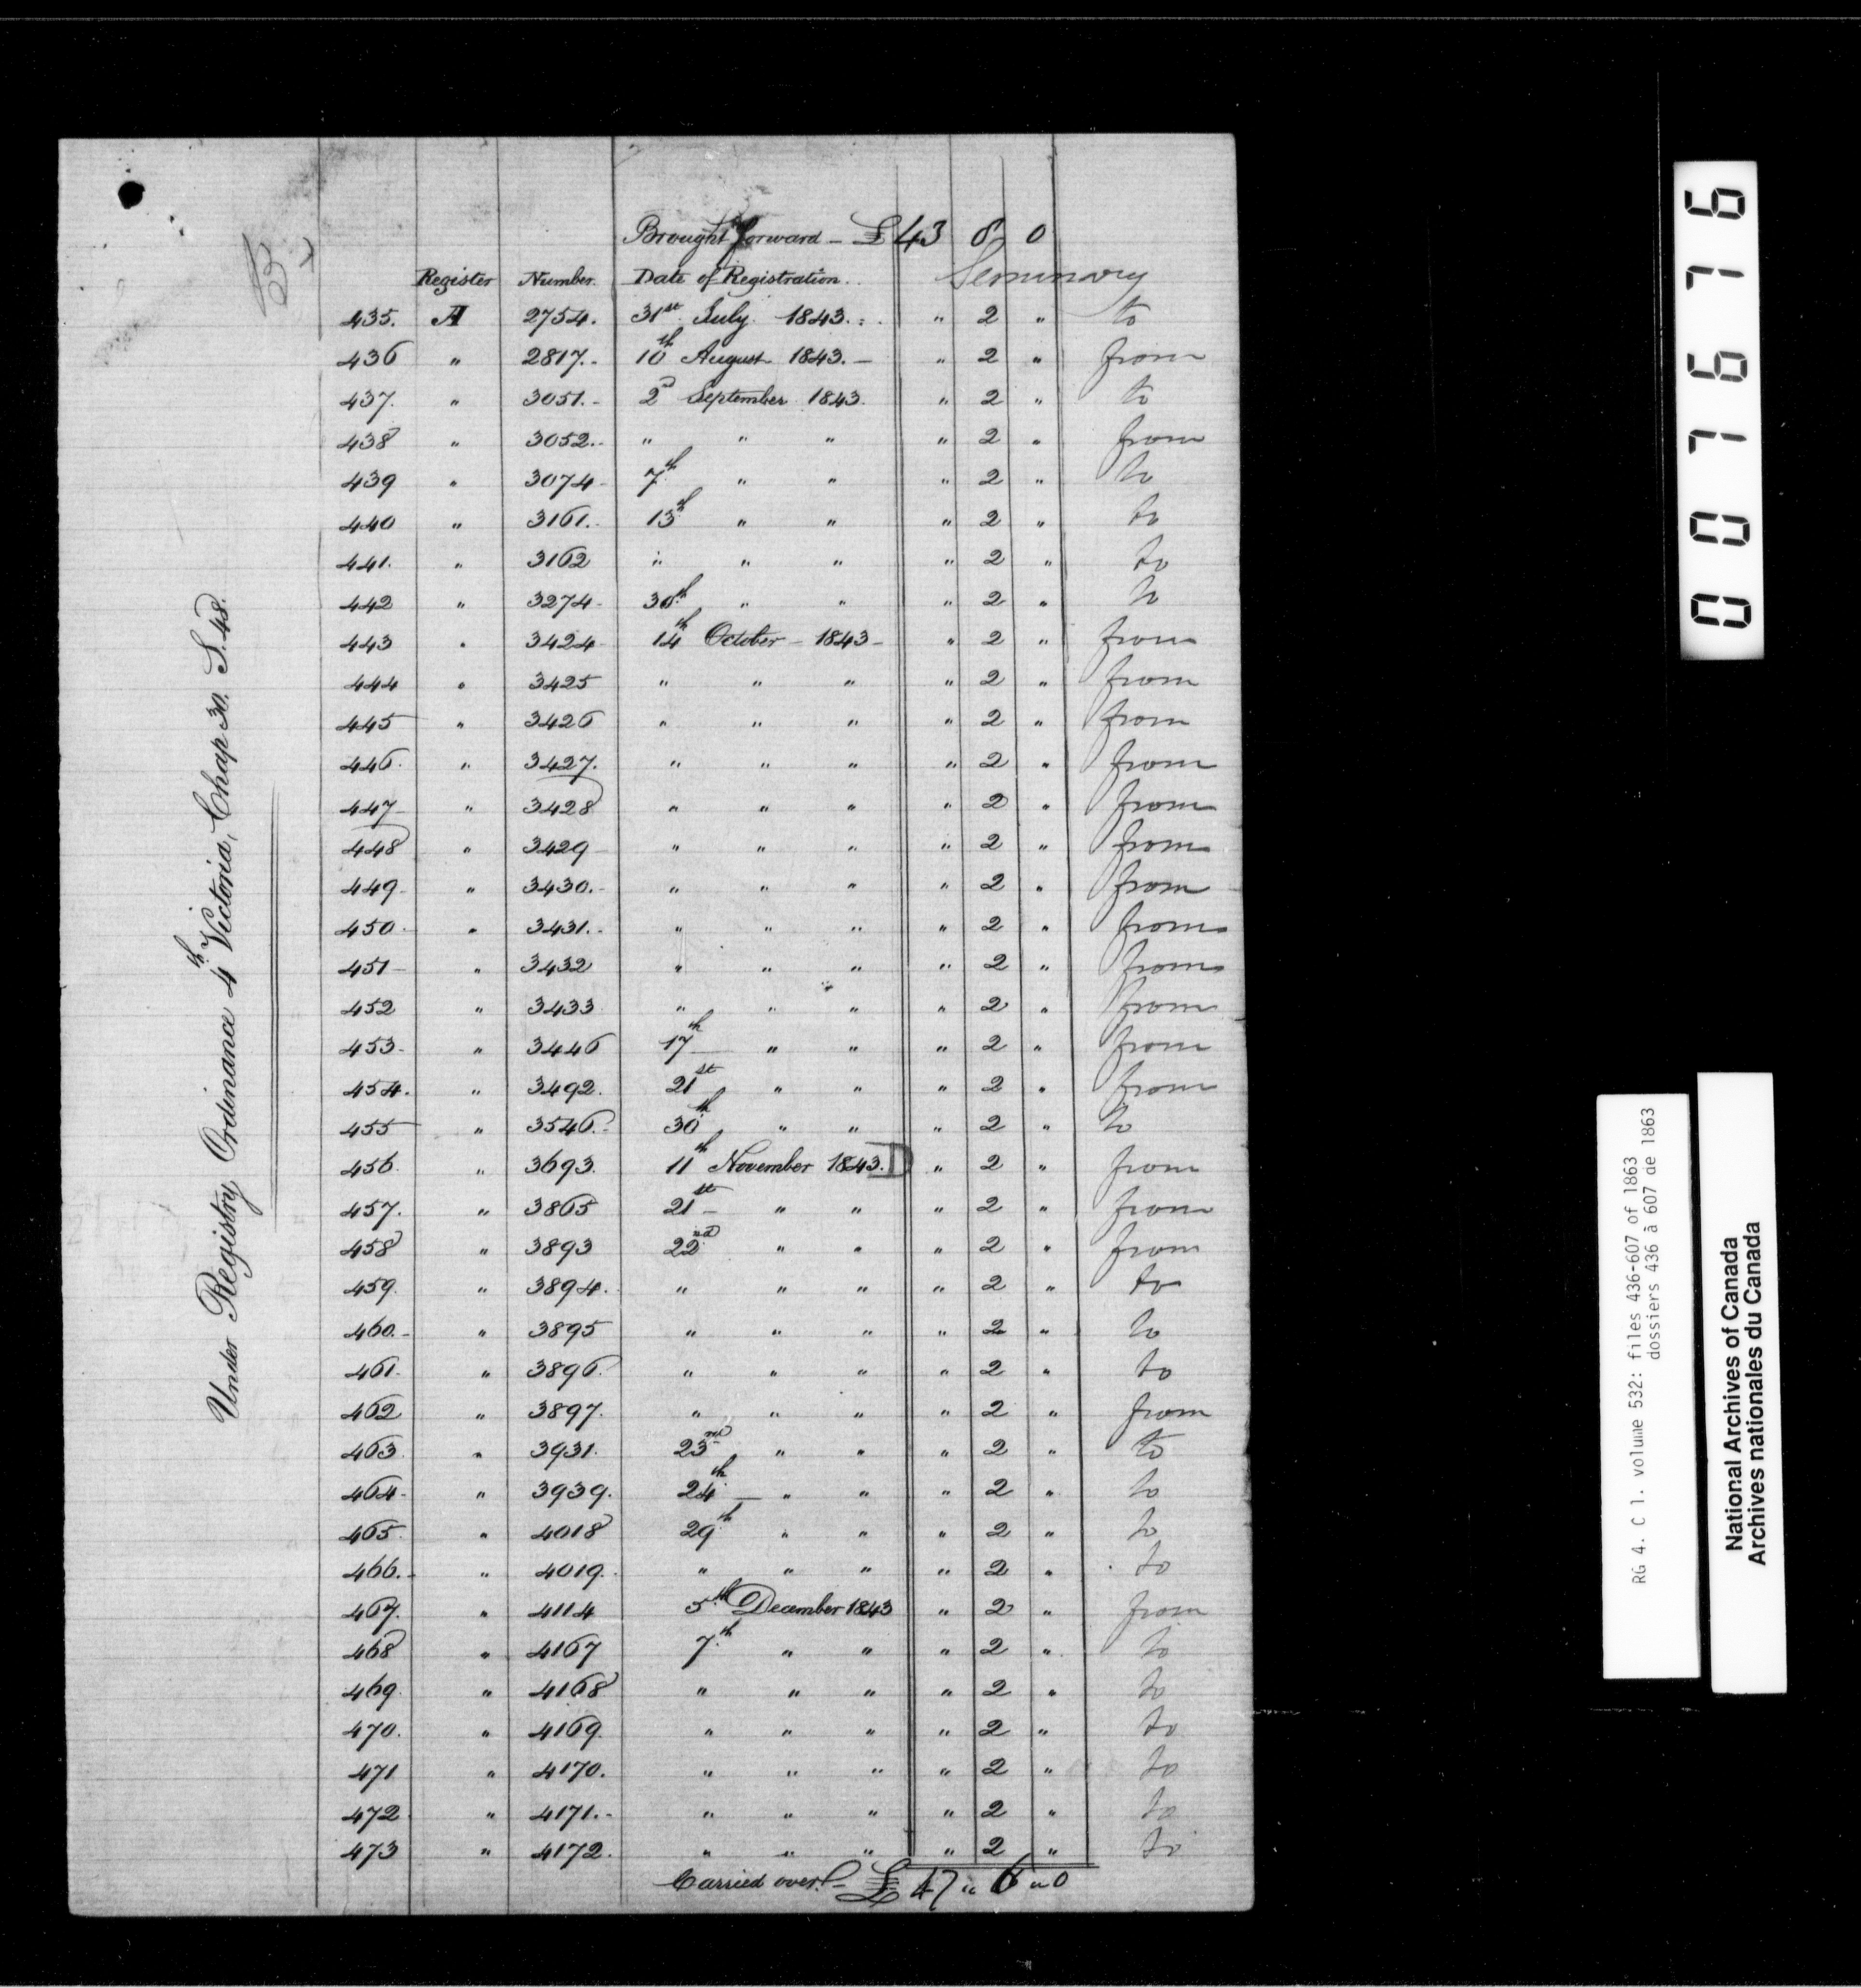 Brought forward - £ 43 8 0
Register Number. Date of Registration. Seminary
435. A 2754. 31st July. 1843. " 2 " to
436 " 2817. - 10th August 1843. - " 2 " from
437. " 3051. - 2d September 1843. " 2 " to
438 " 3052. - " " " " 2 " from
439 " 3074 - 7th " " " 2 " to
440 " 3161. - 13th " " " 2 " to
441. " 3162 " " " " 2 " to
442 " 3274 - 30th " " " 2 " to
443 " 3424 - 14th October - 1843 - " 2 " from
444 " 3425 " " " " 2 " from
445 " 3426 " " " " 2 " from
446. " 3427. " " " " 2 " from
447 - " 3428 " " " " 2 " from
448 " 3429 - " " " " 2 " from
449. " 3430. - " " " " 2 " from
450. " 3431. - " " " " 2 " from
451 - " 3432 " " " " 2 " from
452 " 3433 " " " " 2 " from
453. " 3446 17th " " " 2 " from
454. " 3492. 21st " " " 2 " from
455 " 3546. - 30th " " " 2 " to
456. " 3693. 11th November 1843. D " 2 " from
457. " 3865 21st - " " " 2 " from
458 " 3893 22nd " " " 2 " from
459. " 3894. " " " " 2 " to
460. - " 3895 " " " " 2 " to
461. " 3896. " " " " 2 " to
462 " 3897. " " " " 2 " from
463 " 3931. 23rd " " " 2 " to
464. " 3939. 24th - " " " 2 " to
465. " 4018 29th " " " 2 " to
466. - " 4019. " " " " 2 " to
467. " 4114 5th December 1843 " 2 " from
468 " 4167 7th " " " 2 " to
469. " 4168 " " " " 2 " to
470. " 4169. " " " " 2 " to
471 " 4170. " " " " 2 " to
472 " 4171. - " " " " 2 " to
473 " 4172. " " " " 2 " to
Carried over. - £ 47 " 6 " 0
Under Registry Ordinance 4th Victoria, Chap 30. S. 48.
007676
RG 4. C 1. volume 532: files 436-607 of 1863
dossiers 436 à 607 de 1863
National Archives of Canada
Archives nationales du Canada